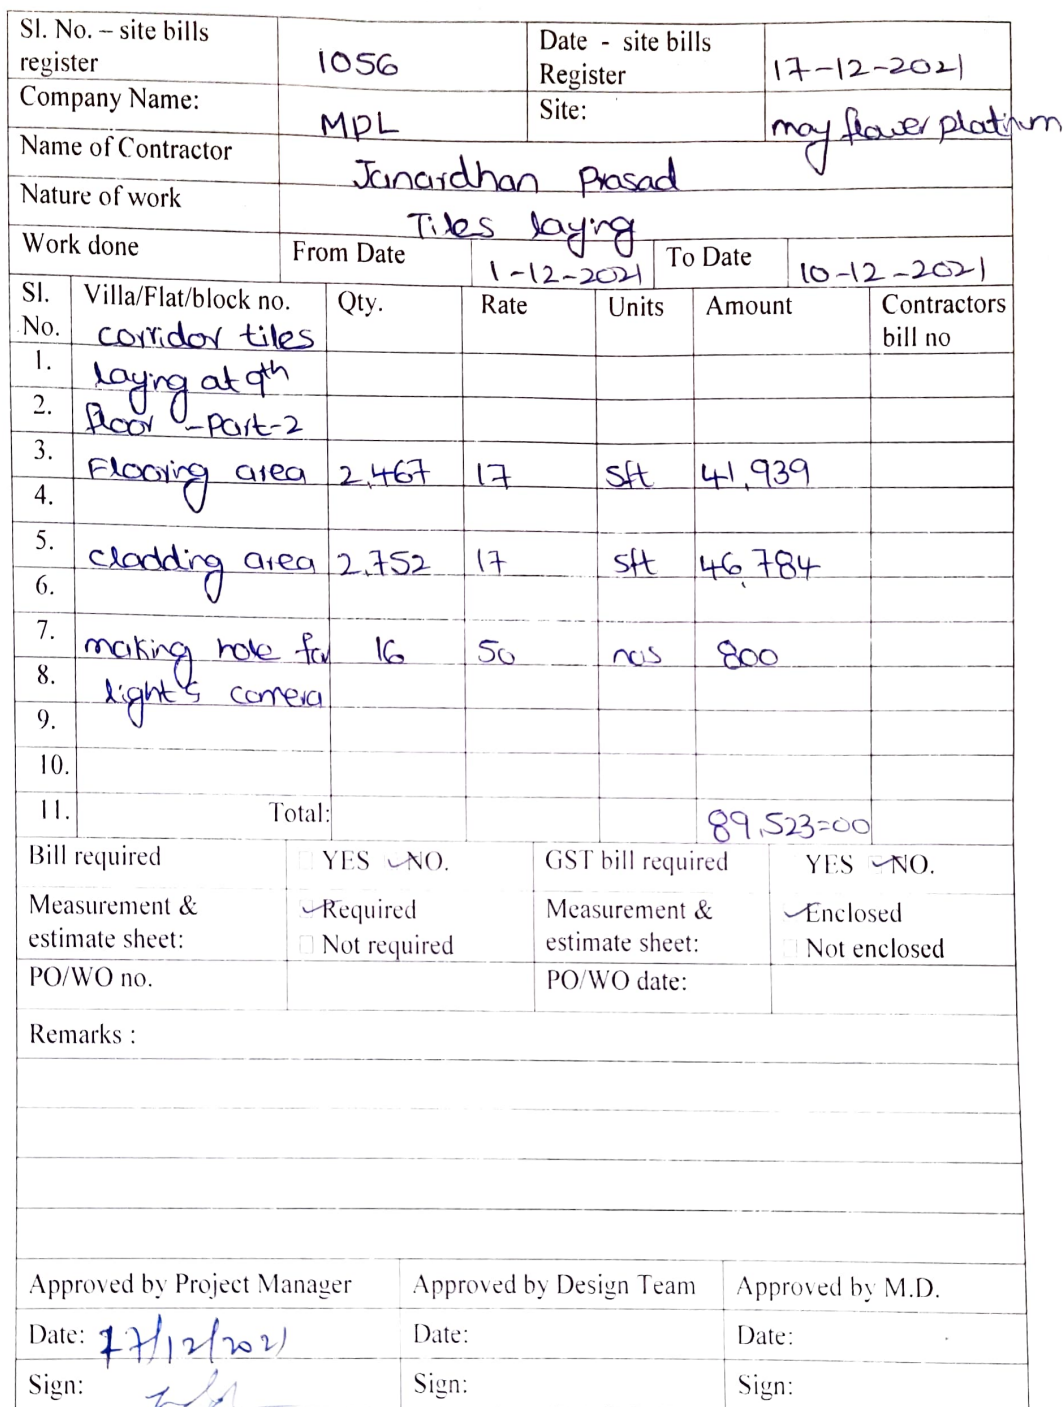 Sl. No. – site bills register 1056 Date - site bills Register 17-12-2021
Company Name: MPL Site: may flower platinum
Name of Contractor Janardhan Prasad
Nature of work Tiles laying
Work done From Date 1-12-2021 To Date 10-12-2021
Sl. No. Villa/Flat/block no. Qty. Rate Units Amount Contractors bill no
corridor tiles
1. laying at 9th
2. floor - Part-2
3. Flooring area 2,467 17 sft 41,939
4.
5. cladding area 2,752 17 sft 46,784
6.
7. making hole for 16 50 nos 800
8. light's camera
9.
10.
11. Total: 89,523=00
Bill required YES NO. GST bill required YES NO.
Measurement & estimate sheet: Required Measurement & estimate sheet: Enclosed
Not required Not enclosed
PO/WO no. PO/WO date:
Remarks :
Approved by Project Manager Approved by Design Team Approved by M.D.
Date: 17/12/2021 Date: Date:
Sign: Sign: Sign: